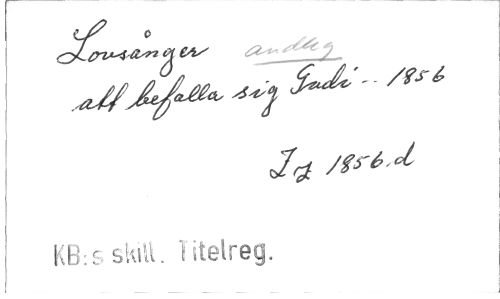 Lovsånger andlig
att befalla sig Gudi -- 1856
Zz 1856.d
KB:s skill. Titelreg.